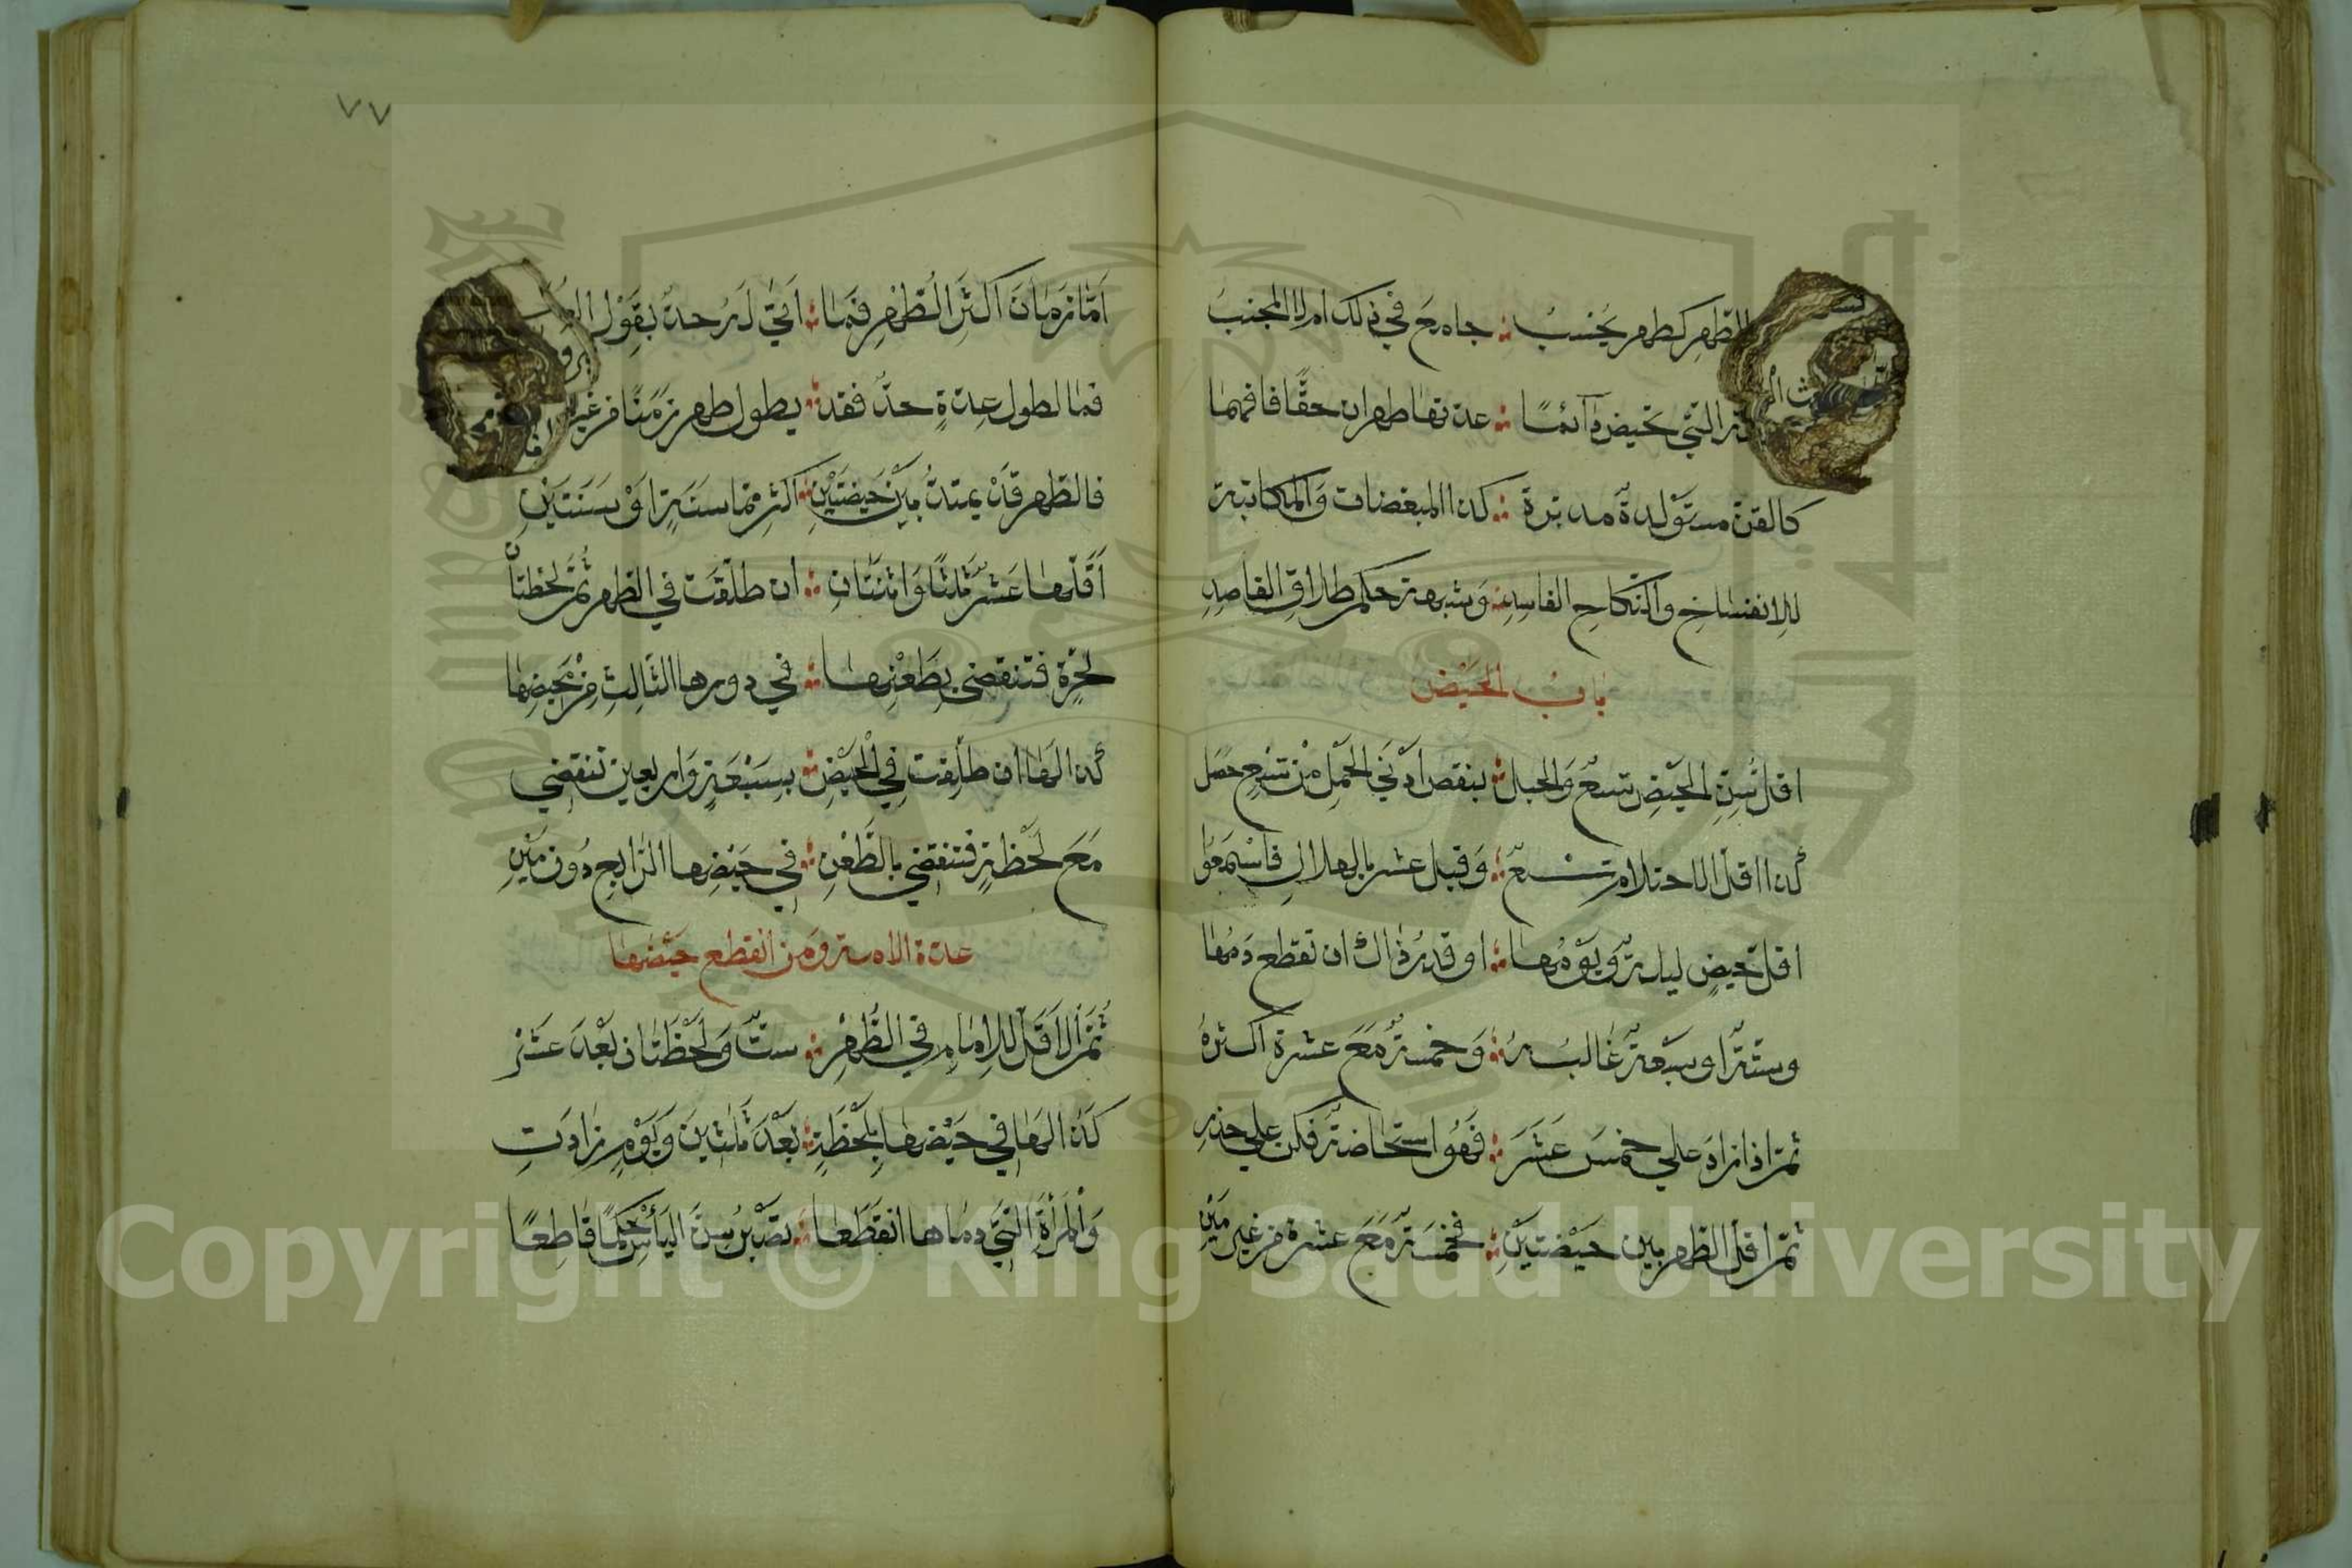 الطهر كطهر يحسب ؞ جامع في ذلك ام لا المجنب
التي تحيض دآئمًا ؞ عدتها طهران حقًا فافهما
كالقن مستولدة مدبرة ؞ كذا المبعضات والمكاتبة
للانفساخ والنكاح الفاسد ؞ وشبهة حكم طلاق القاصد
باب الحيض
اقل سن الحيض تسع والحبل ؞ بنقص ادني الحمل من تسع حصل
كذا اقل الاحتلام تسع ؞ وقبل عشر بالهلال فاسمعوا
اقل حيض ليلة ويومها ؞ او قدر ذاك ان تقطع دمها
وستة او سبعة غالبه ؞ وخمسة مع عشرة اكثره
ثم اذا زاد علي خمس عشر ؞ فهو استحاضة فكن علي حذر
ثم اقل الطهر بين حيضتين ؞ فخمسة مع عشرة من غير مين
٧٧
اما زمان اكثر الطهر فما ؞ اتي له حد بقول
فما لطول عدة حد فقد ؞ يطول طهر زمنا من غير
فالطهر قد يمتد بين حيضتين ؞ اكثر مما سنة او سنتين
اقلها عشر ثلثا واثنتان ؞ ان طلقت في الطهر ثم لحظتان
لحرة فتنقضي بطعنها ؞ في دورها الثالث من محيضها
كذا لها ان طلقت في الحيض ؞ بسبعة واربعين تنقضي
مع لحظة فتنقضي بالطعن ؞ في حيضها الرابع دون مين
عدة الامة ومن انقطع حيضها
ثم الاقل للاماء في الطهر ؞ ست ولحظتان بعد عشر
كذا لها في حيضها بلحظة ؞ بعد ثلثين ويوم زادت
والمرأة التي دماها انقطعا ؞ تصبر سن اليأس حكما قاطعًا
Copyright © King Saud University